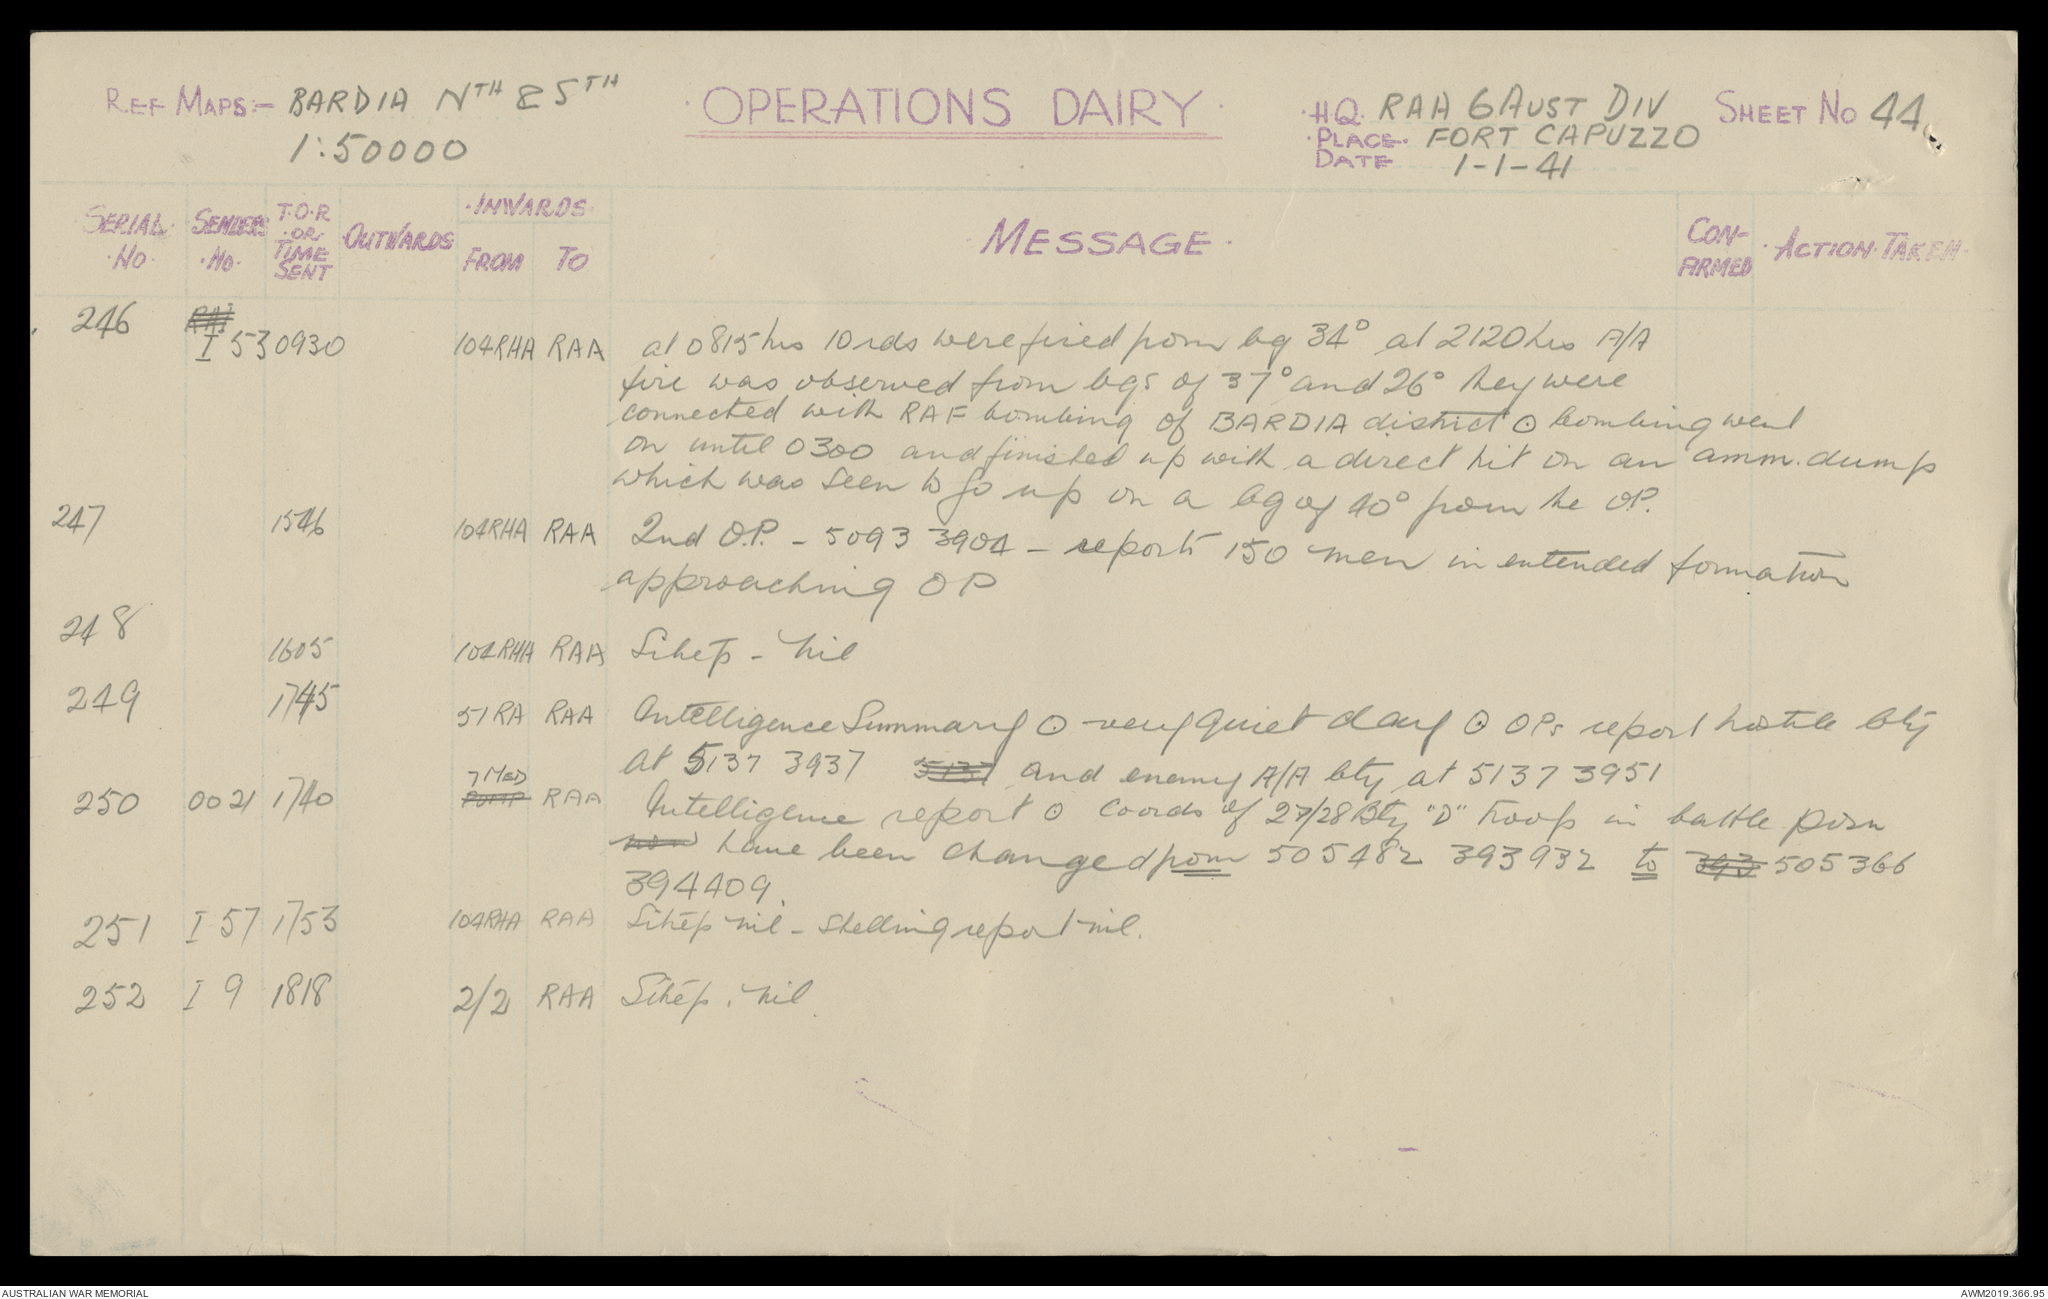 REF MAPS:- BARDIA NTH & STH
1:50000
OPERATIONS DAIRY
HQ. RAA 6 AUST DIV
PLACE. FORT CAPUZZO
DATE 1-1-41
SHEET NO 44
SERIAL NO.
SENDERS NO.
T.O.R OR TIME SENT
OUTWARDS
INWARDS
FROM TO
MESSAGE
CON-FIRMED
ACTION TAKEN
246 I 53 0930 104RHA RAA at 0815 hrs 10 rds were fired from bg 34° at 2120 hrs A/A
fire was observed from bgs of 37° and 26° they were
connected with RAF bombing of BARDIA district ⊙ bombing went
on until 0300 and finished up with a direct hit on an amm. dump
which was seen to go up on a bg of 40° from the O.P.
247 1546 104RHA RAA 2nd O.P. - 5093 3904 - reports 150 men in extended formation
approaching OP
248 1605 104RHA RAA Sitrep - Nil
249 1745 51RA RAA Intelligence Summary ⊙ very quiet day ⊙ OPs report hostile bty
at 5137 3937 5137 and enemy A/A bty at 5137 3951
7 MED
250 0021 1740 PUMP RAA Intelligence report ⊙ Coords of 27/28 Bty "D" Troop in battle posn
now have been changed from 505482 393932 to 393 505366
394409.
251 I 57 1753 104RHA RAA Sitrep nil - Shelling report nil.
252 I 9 1818 2/2 RAA Sitrep. Nil.
AUSTRALIAN WAR MEMORIAL
AWM2019.366.95